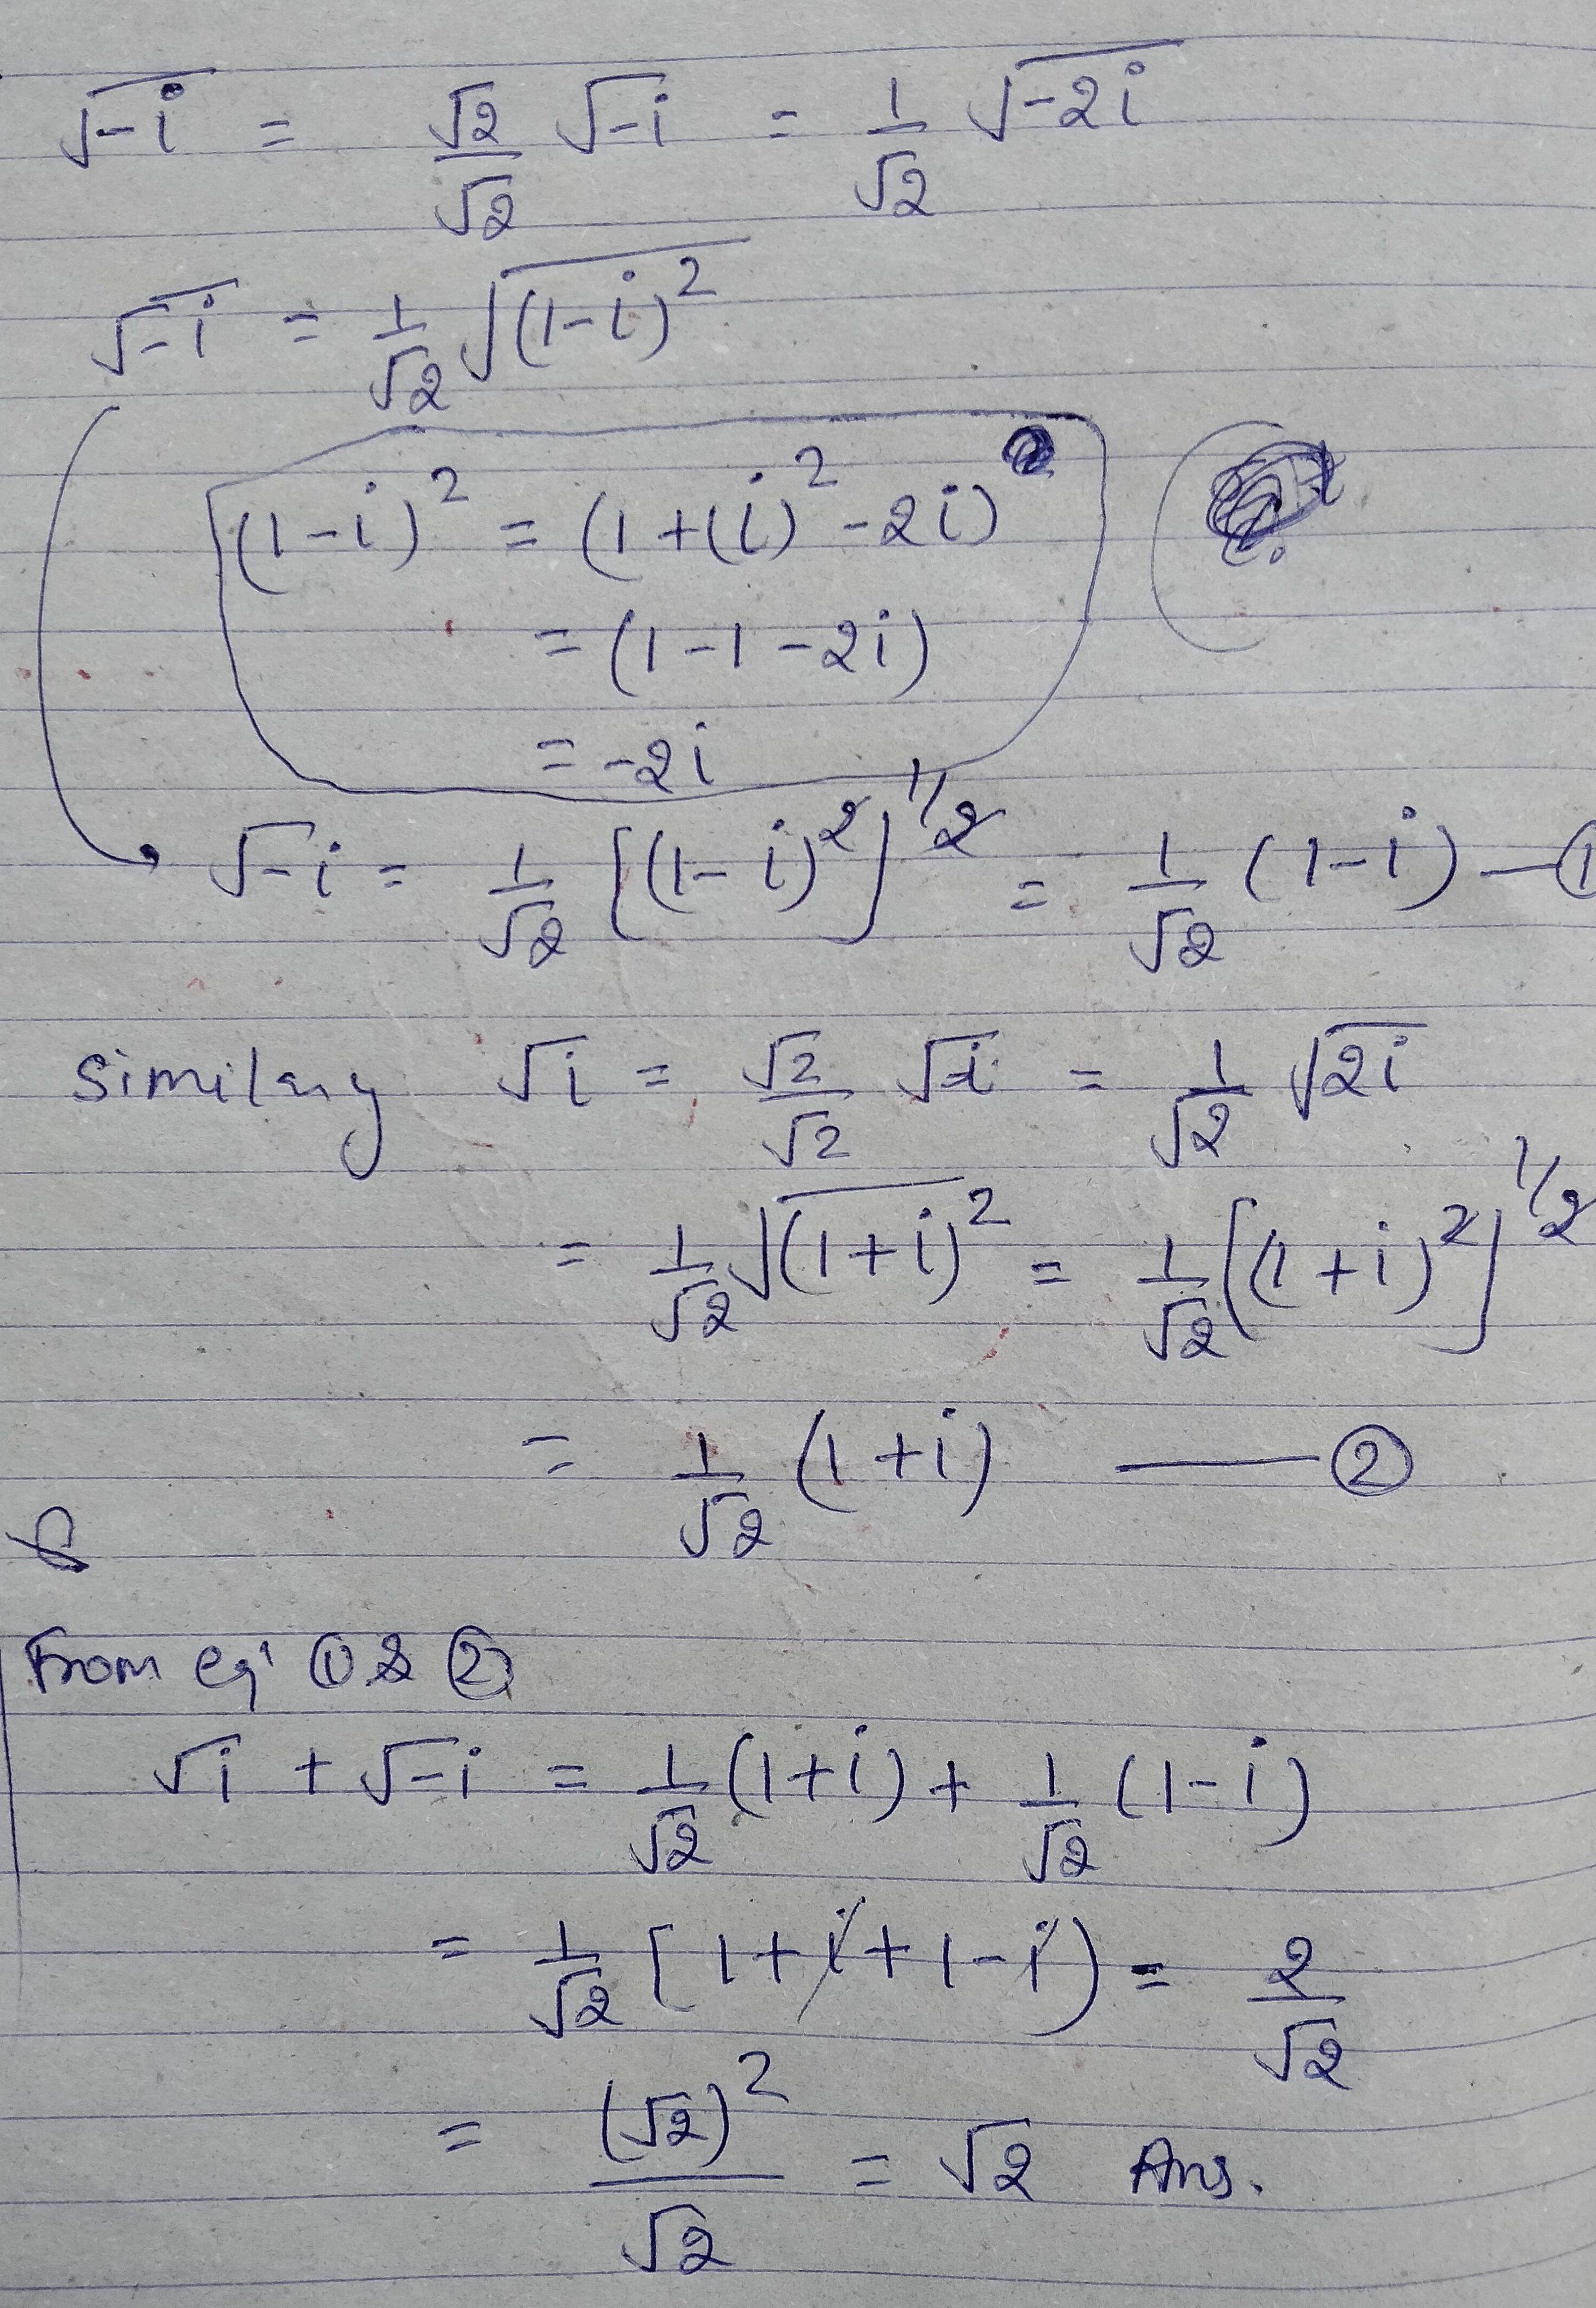 √-i = √2/√2 √-i = 1/√2 √-2i
√-i = 1/√2 √(1-i)²
(1-i)² = (1+(i)²-2i)
= (1-1-2i)
= -2i
√-i = 1/√2 [(1-i)²]^1/2 = 1/√2 (1-i) — ①
Similary √i = √2/√2 √i = 1/√2 √2i
= 1/√2 √(1+i)² = 1/√2 [(1+i)²]^1/2
= 1/√2 (1+i) — ②
From eqⁿ ① & ②
√i + √-i = 1/√2 (1+i) + 1/√2 (1-i)
= 1/√2 [1+i+1-i) = 2/√2
= (√2)²/√2 = √2 Ans.